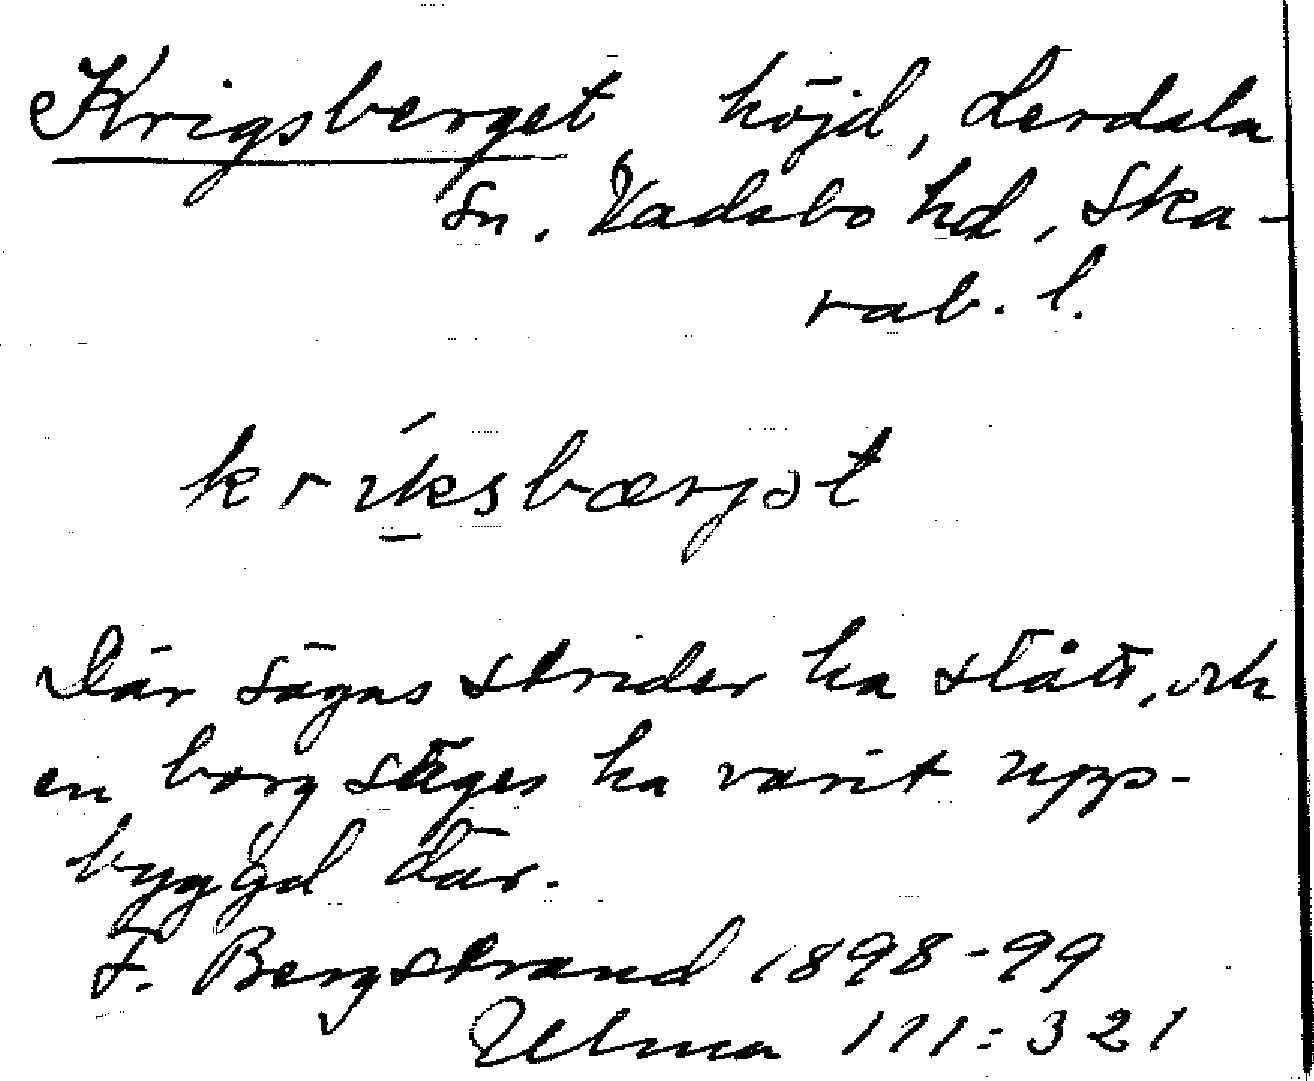 Krigsberget höjd, Lerdala
sn. Vadsbo hd, Ska-
rab. l.
kríksbærjət
Där sägas strider ha stått, och
en borg säges ha varit upp-
byggd där.
F. Bergstrand 1898-99
Ulma 111:321